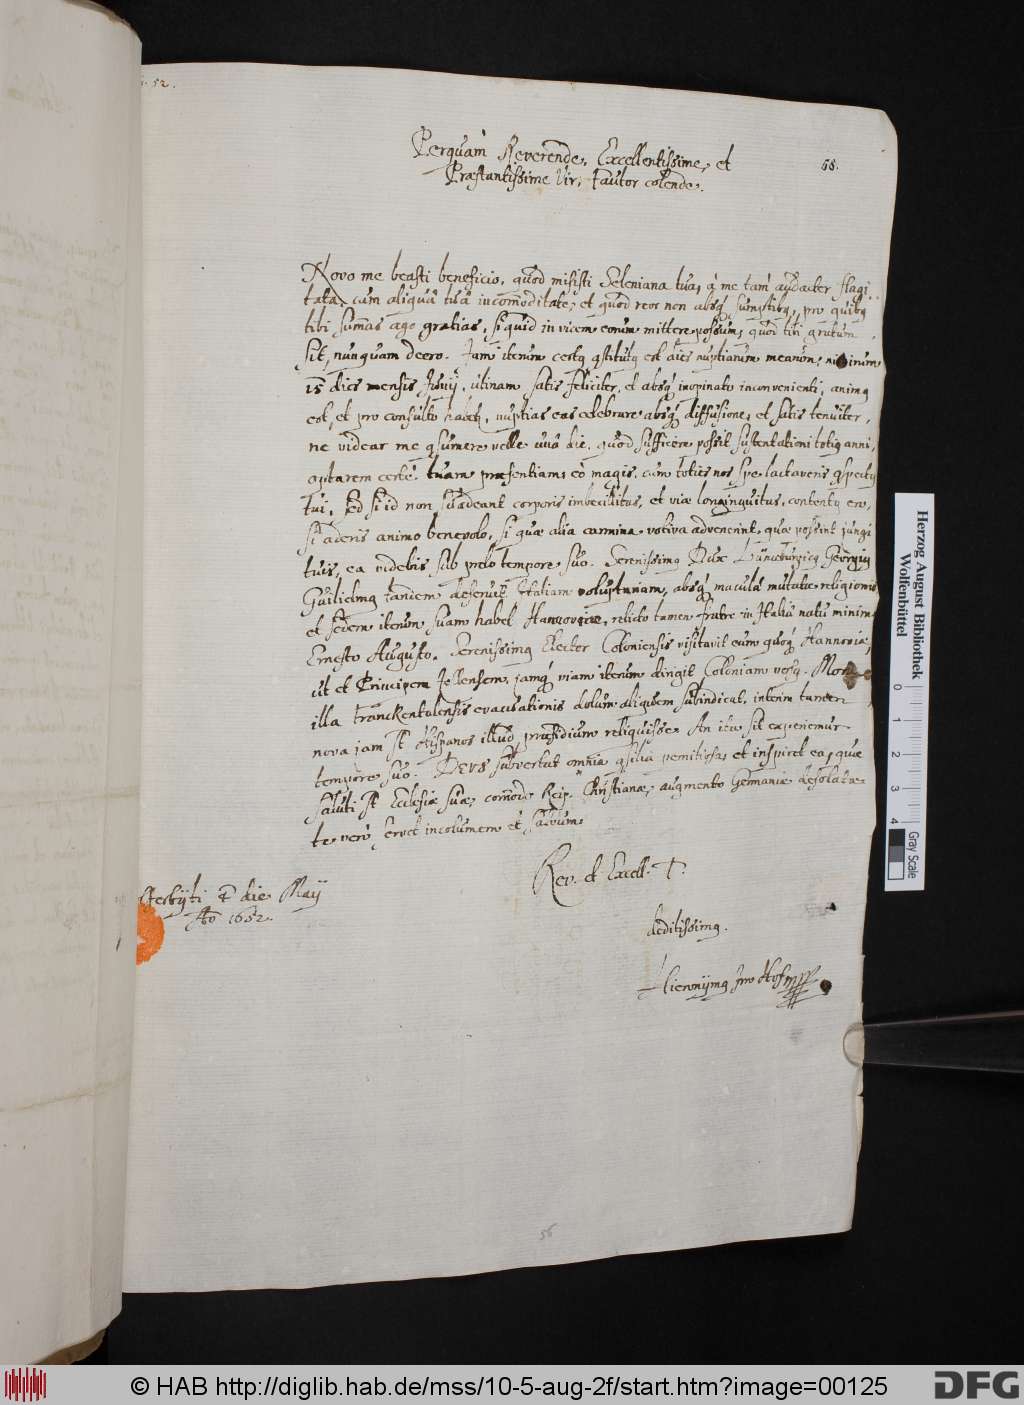 52.
68.
Perquam Reverende, Excellentissime, et
Præstantissime Vir, Fautor colende.
Novo me beasti beneficio, quod misisti Seleniana tua, à me tam audacter flagi-
tata, cum aliquâ tuâ incomoditate, et quod reor non absq, sumptibq, pro quibq
tibi summas ago gratias, si quid in vicem eorum mittere possum, quod tibi gratum
sit, nunquam deero. Jam iterum certq qstitutq est dies nuptiarum mearum, nimirum
15 dies mensis Junij, utinam satis feliciter, et absq inopinato inconvenienti, animq
est, et pro consulto habetr, nuptias eas celebrare absq diffusione, et satis tenuiter,
ne videar me qsumere velle unâ die, quod sufficere possit sustentationi totiq anni,
optarem certè tuam præsentiam, eò magis, cum toties nos spe lactaveris qspectq
tui, sed si id non suadeant corporis imbecillitas, et viæ longinquitas, contentq ero,
si aderis animo benevolo, si quæ alia carmina votiva advenerint, quæ possint jungi
tuis, ea videbis sub prelo tempore suo. Serenissimq Dux Lüneburgicq Georgiq
Guilielmq tandem deseruit Italiam voluptariam, absq maculâ mutatæ religionis
et sedem iterum suam habet Hannoveræ, relicto tamen fratre in Italiâ natu minimo
Ernesto Augusto. Serenissimq Elector Coloniensis visitavit eum quoq Hannoveræ,
ut et Principem , jamq viam iterum dirigit Coloniam versq.
illa Franckentalensis evacuationis dolum aliquem subindicat, interim tamen
nova jam st Hispanos illud præsidium reliquisse. An ita sit experiemur
tempore suo. DEUS subvertat omnia qsilia , et inspiret ea, quæ
saluti st Ecclesiæ suæ, comodo Reip. Christianæ, augmento Germaniæ desolatæ.
te verò servet incolumem et salvum.
Rev. et Excell. T.
deditissimq.
Hieronymq
die Maij
Ao 1652.
56
Herzog August Bibliothek
Wolfenbüttel
0 1 2 3 4
Gray Scale
© HAB http://diglib.hab.de/mss/10-5-aug-2f/start.htm?image=00125
DFG